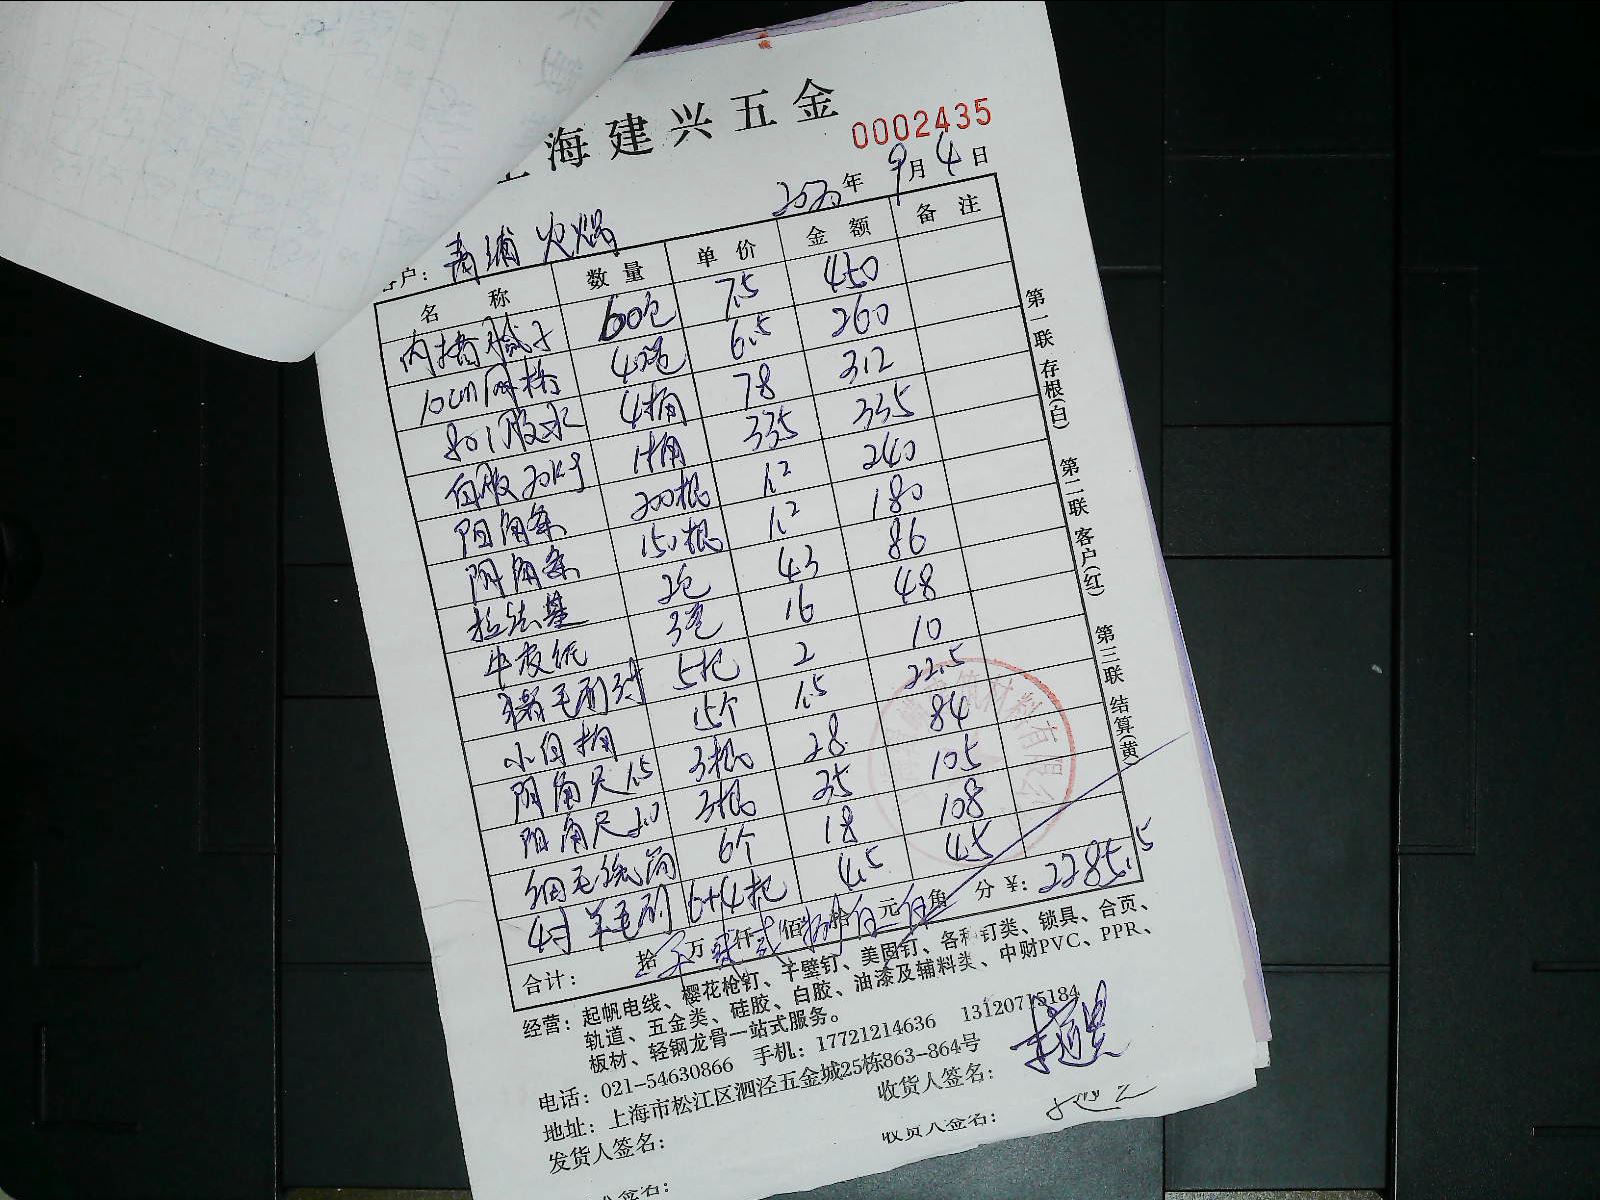 上海建兴五金
0002435
2020年9月4日
客户：青浦火焰
名称 数量 单价 金额 备注
内墙腻子 60包 7.5 450
10cm网格 40卷 6.5 260
801胶水 4桶 78 312
白胶20kg 1桶 335 335
阳角条 200根 1.2 240
阴角条 150根 1.2 180
拉法基 2包 43 86
牛皮纸 3卷 16 48
猪毛刷3寸 5把 2 10
小白桶 15个 1.5 22.5
阴角尺1.5 3根 28 84
阳角尺2.0 3根 35 105
细毛滚筒 6个 18 108
4寸羊毛刷 6+4把 4.5 45
合计： 拾 万 仟 佰 拾 元 角 分 ¥：2285.5
第一联 存根(白) 第二联 客户(红) 第三联 结算(黄)
材料有限公
经营：起帆电线、樱花枪钉、干壁钉、美固钉、各种钉类、锁具、合页、
轨道、五金类、硅胶、白胶、油漆及辅料类、中财PVC、PPR、
板材、轻钢龙骨一站式服务。
电话：021-54630866 手机：17721214636 13120715184
地址：上海市松江区泗泾五金城25栋863-864号
发货人签名： 收货人签名：
人签名： 收货人签名：